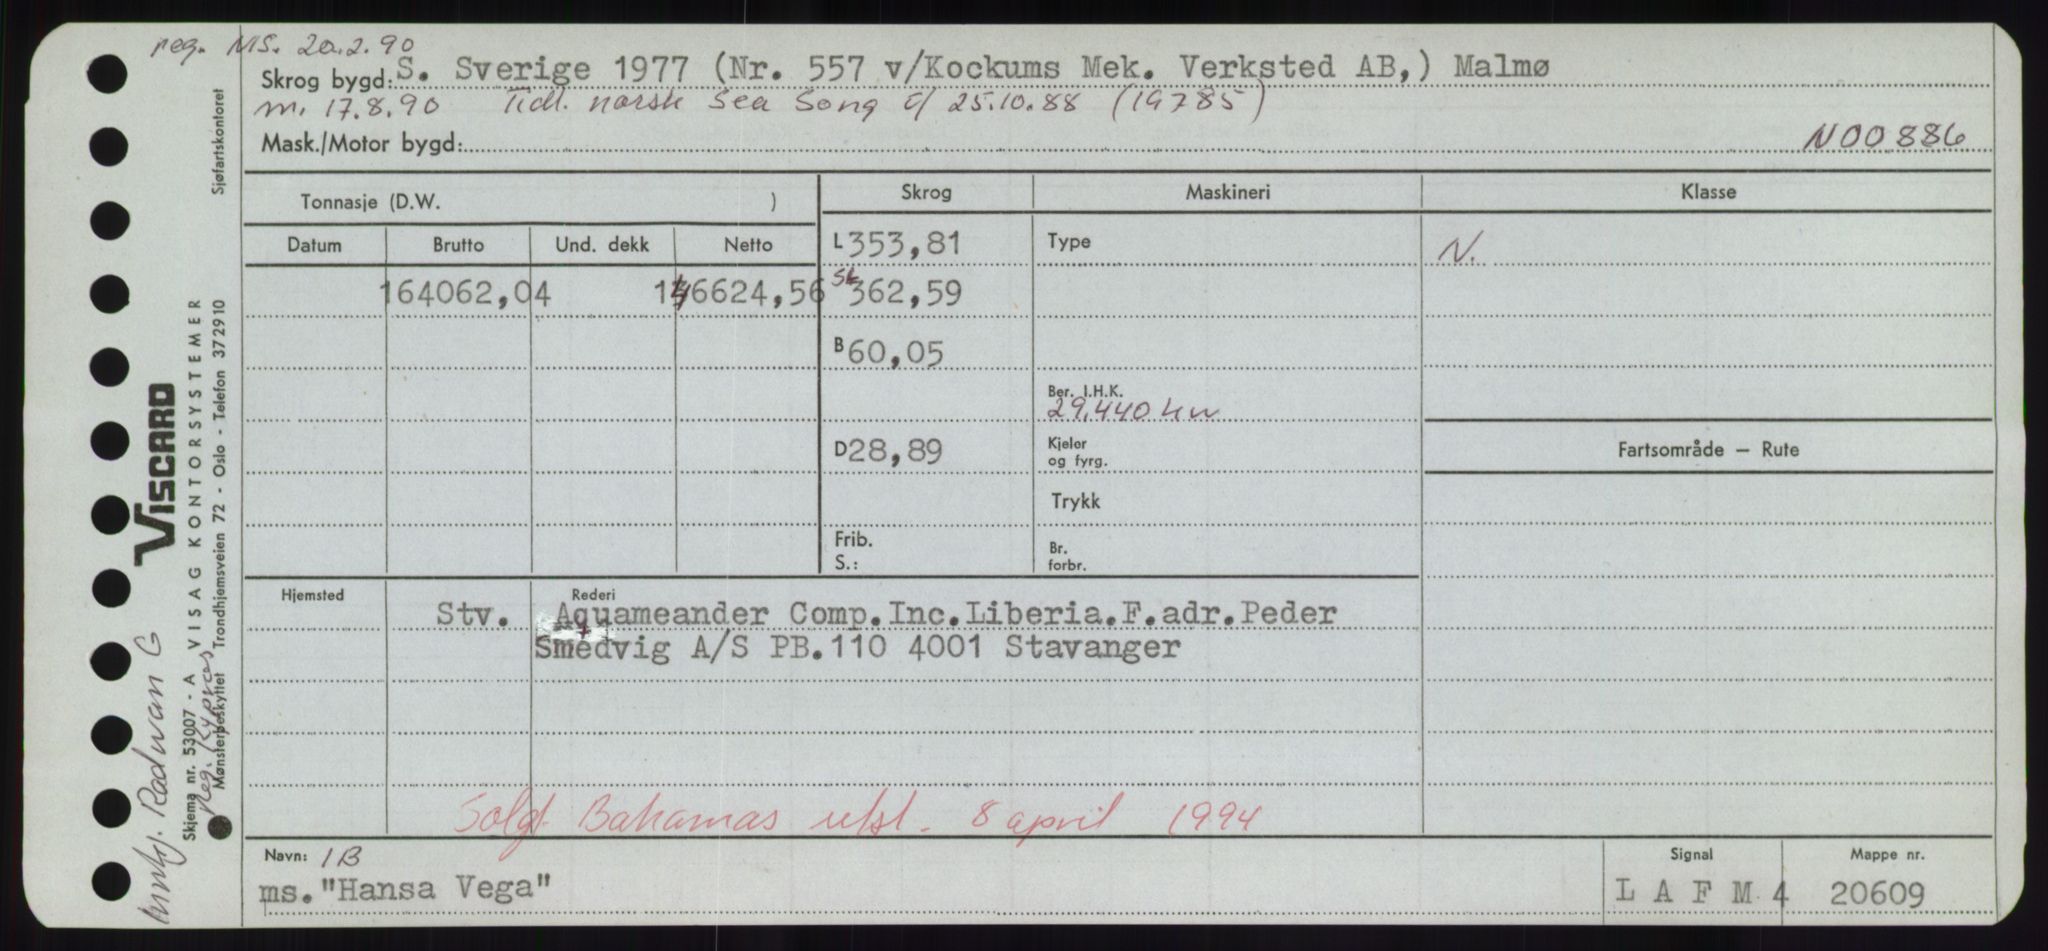 reg. MS. 20.2.90
Skrog bygd: S. Sverige 1977 (Nr. 557 v/Kockums Mek. Verksted AB,) Malmø
m. 17.8.90 Tidl. norsk Sea Song e/ 25.10.88 (19785)
Mask./Motor bygd: N00886
Tonnasje (D.W. )
Skrog Maskineri Klasse
Datum Brutto Und. dekk Netto
L 353,81 Type N.
164062,04 146624,56 SL 362,59
B 60,05
Ber. I.H.K.
29.440 kw
D 28,89 Kjeler
og fyrg.
Fartsområde — Rute
Trykk
Frib.
S.:
Br.
forbr.
Hjemsted Rederi
Stv. Aquameander Comp.Inc.Liberia.F.adr.Peder
+
Smedvig A/S PB.110 4001 Stavanger
Solgt Bahamas u/sl. 8 april 1994
Navn: 1B Signal Mappe nr.
ms. "Hansa Vega" L A F M 4 20609
Radwan G
reg. Kypros
VISCARD
Skjema nr. 53007 - A VISAG KONTORSYSTEMER Sjøfartskontoret
Mønsterbeskyttet Trondhjemsveien 72 - Oslo - Telefon 372910